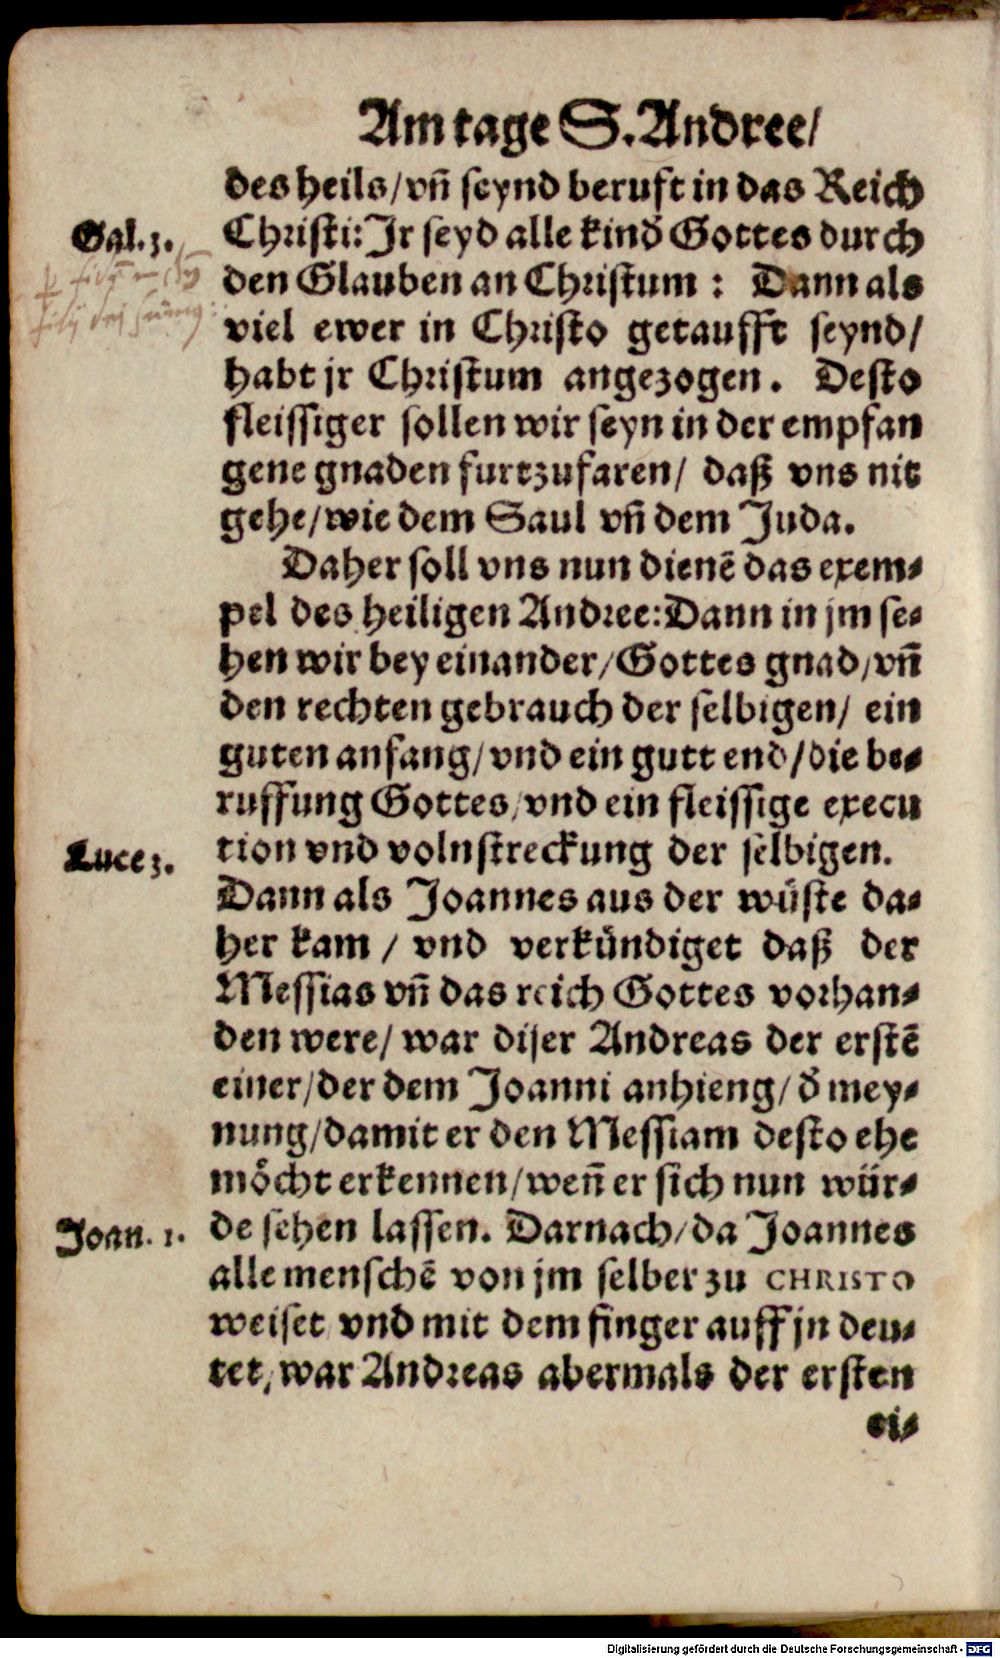 Am tage S. Andree/
des heils/ vn̄ seynd beruft in das Reich
Gal. 3.
Christi: Jr seyd alle kind̛ Gottes durch
den Glauben an Christum : Dann als
viel ewer in Christo getaufft seynd/
habt jr Christum angezogen. Desto
fleissiger sollen wir seyn in der empfan
gene gnaden furtzufaren/ daß vns nit
gehe/ wie dem Saul vn̄ dem Juda.
Daher soll vns nun dienē das exem⸗
pel des heiligen Andree: Dann in jm se⸗
hen wir bey einander/ Gottes gnad/ vn̄
den rechten gebrauch der selbigen/ ein
guten anfang/ vnd ein gutt end/ die be⸗
ruffung Gottes/ vnd ein fleissige execu
tion vnd volnstreckung der selbigen.
Luce 3.
Dann als Joannes aus der wüste da⸗
her kam / vnd verkündiget daß der
Messias vn̄ das reich Gottes vorhan⸗
den were/ war diser Andreas der erstē
einer/ der dem Joanni anhieng/ d̛ mey⸗
nung/ damit er den Messiam desto ehe
möcht erkennen/ wen̄ er sich nun wür⸗
Joan. 1.
de sehen lassen. Darnach/ da Joannes
alle menschē von jm selber zu CHRISTO
weiset vnd mit dem finger auff jn deu⸗
tet, war Andreas abermals der ersten
ei⸗
Digitalisierung gefördert durch die Deutsche Forschungsgemeinschaft - DFG